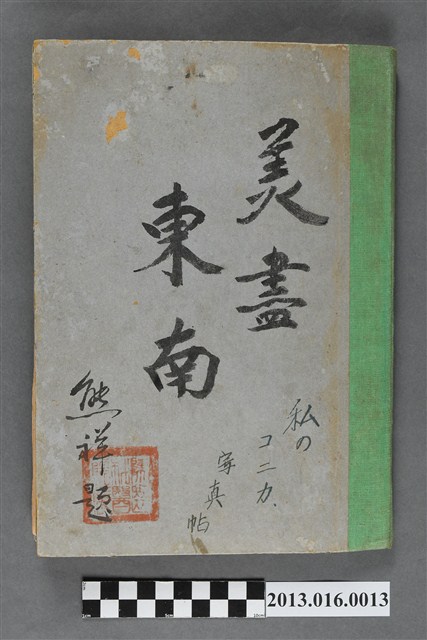 美盡
東南
私の
コニカ
寫真帖
熊祥題
2013.016.0013